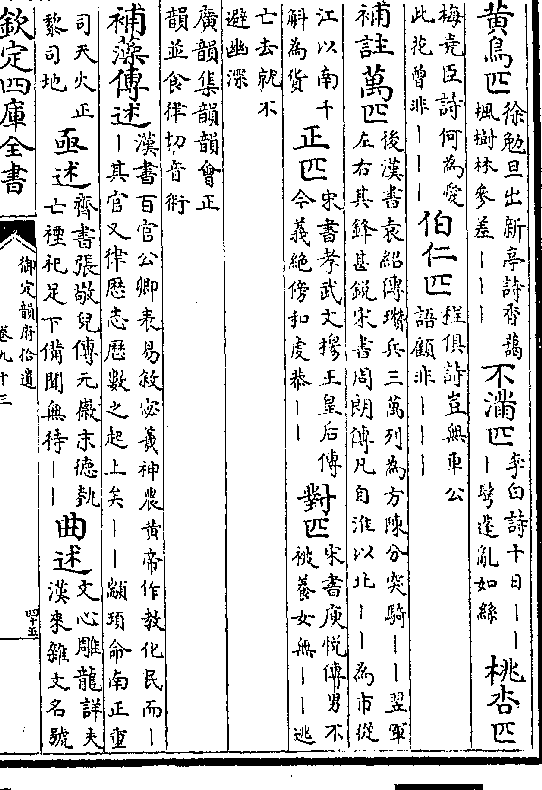 黄鳥匹徐勉旦出新亭詩杳藹楓樹林參差｜｜｜不滿匹李白詩十日｜｜｜髩逢亂如絲桃杏匹
梅堯臣詩何為愛此花曾非｜｜｜伯仁匹程俱詩豈無車公語顧非｜｜｜
補註萬匹後漢書袁紹傳瓚兵三萬列為方陳分突騎｜｜翌軍左右其鋒甚銳宋書周朗傳凡自淮以北｜｜為市從
江以南千斛為貨正匹宋書孝武文穆王皇后傳令義絕傍扣虔恭｜｜對匹宋書庾悅傳男不被養女無｜｜逃
亡去就不避幽深
廣韻集韻韻會正韻並食律切音術
補藻傳述漢書百官公卿表易敘宓羲神農黄帝作教化民而｜｜其官又律歷志歷數之起上矣｜｜顓頊命南正重
司天火正黎司地亟述齊書張敬兒傳元徽末德埶亡禋祀足下備聞無待｜｜曲述文心雕龍詳夫漢來雜文名號
欽定四庫全書
御定韻府拾遺
卷九十三
四十五